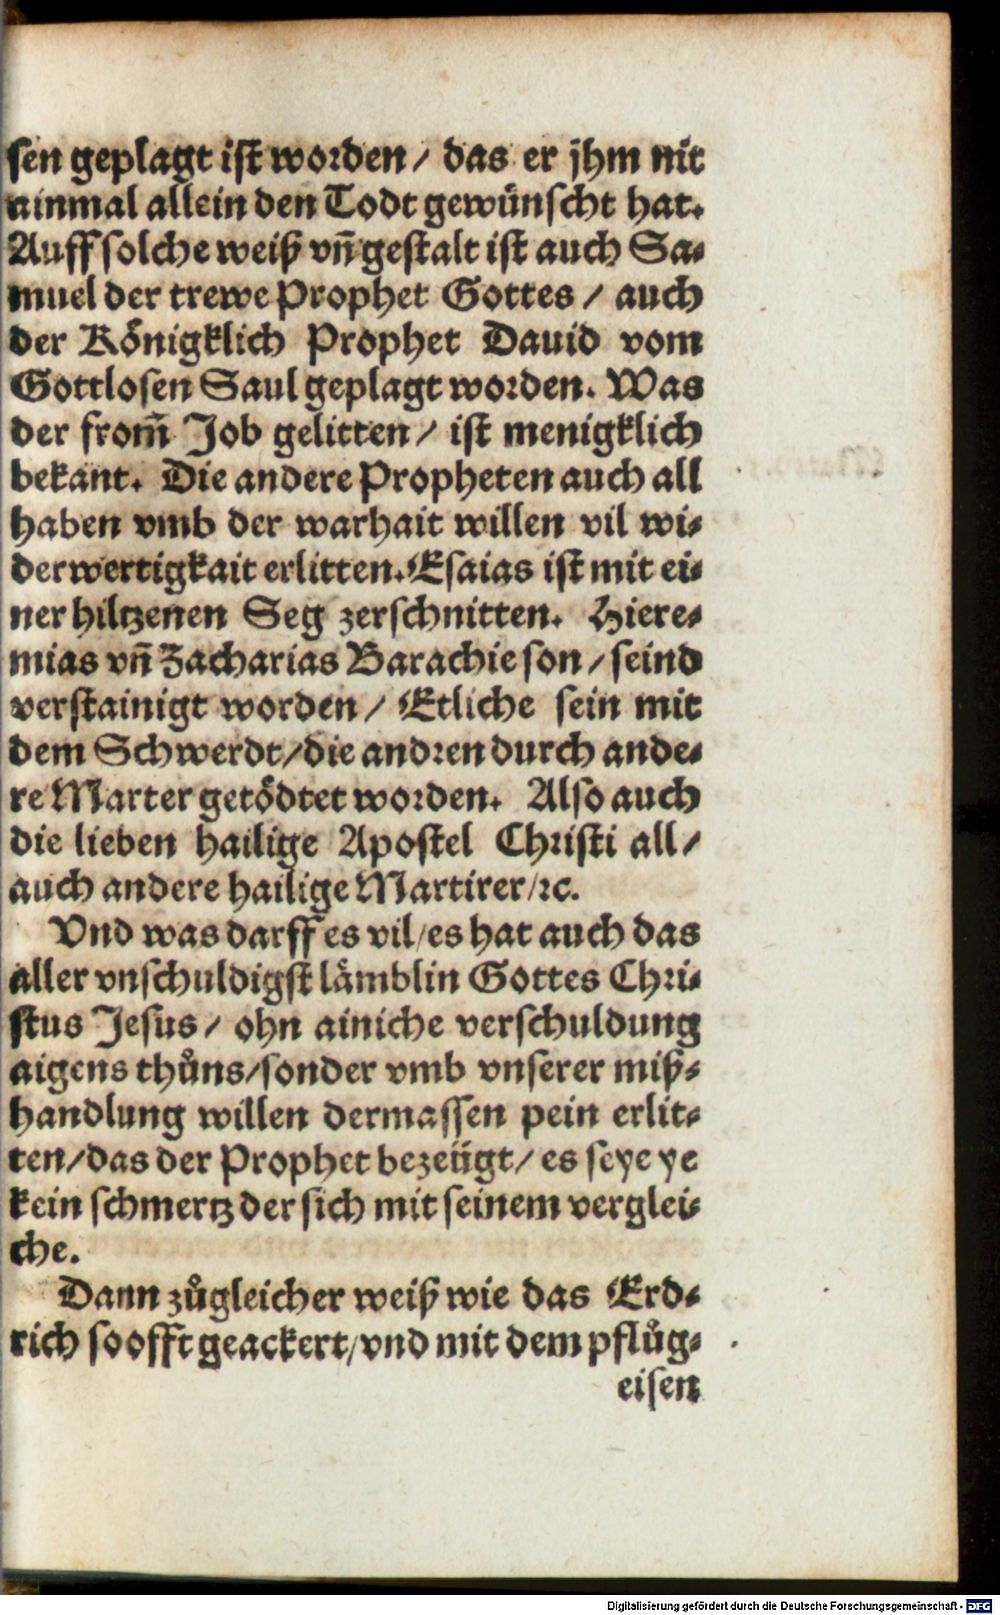 sen geplagt ist worden / das er jhm nit
ainmal allein den Todt gewünscht hat.
Auff solche weiß vn̄ gestalt ist auch Sa-
muel der trewe Prophet Gottes / auch
der Königklich Prophet Dauid vom
Gottlosen Saul geplagt worden. Was
der from̄ Job gelitten / ist menigklich
bekant. Die andere Propheten auch all
haben vmb der warhait willen vil wi-
derwertigkait erlitten. Esaias ist mit ei-
ner hiltzenen Seg zerschnitten. Hiere-
mias vn̄ Zacharias Barachie son / seind
verstainigt worden / Etliche sein mit
dem Schwerdt / die andren durch ande-
re Marter getödtet worden. Also auch
die lieben hailige Apostel Christi all /
auch andere hailige Martirer / ꝛc.
Vnd was darff es vil / es hat auch das
aller vnschuldigst lämblin Gottes Chri-
stus Jesus / ohn ainiche verschuldung
aigens thůns / sonder vmb vnserer miß-
handlung willen dermassen pein erlit-
ten / das der Prophet bezeügt / es seye ye
kein schmertz der sich mit seinem verglei-
che.
Dann zůgleicher weiß wie das Erd-
rich so offt geackert / vnd mit dem pflůg-
eisen
Digitalisierung gefördert durch die Deutsche Forschungsgemeinschaft - DFG